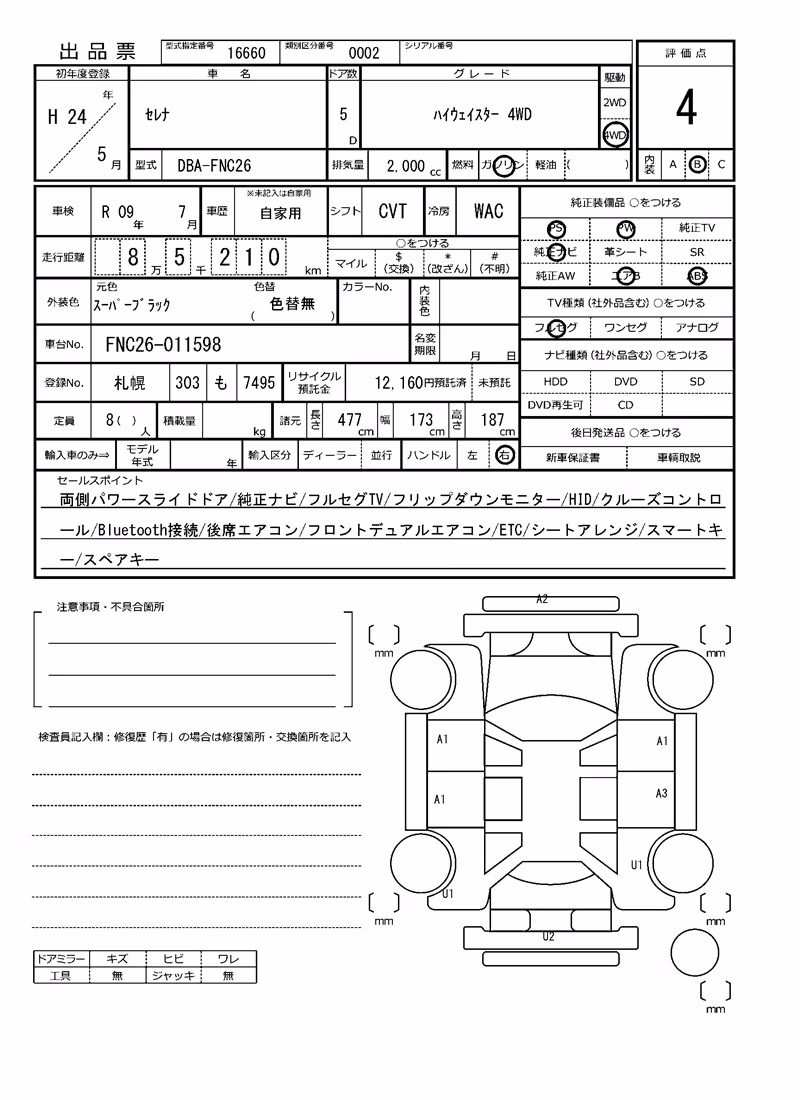 出品票 型式指定番号 16660 類別区分番号 0002 シリアル番号
評価点
4
内装 A B C
初年度登録 車名 ドア数 グレード 駆動
H 24 年 5 月 セレナ 5 D ハイウェイスター 4WD 2WD 4WD
型式 DBA-FNC26 排気量 2,000 cc 燃料 ガソリン 軽油 ( )
車検 R 09 年 7 月 車歴 ※未記入は自家用 自家用 シフト CVT 冷房 WAC
走行距離 8 万 5 千 2 1 0 km ○をつける マイル $ (交換) * (改ざん) # (不明)
外装色 元色 スーパーブラック 色替 ( 色替無 ) カラーNo. 内装色
車台No. FNC26-011598 名変期限 月 日
登録No. 札幌 303 も 7495 リサイクル預託金 12,160円預託済 未預託
定員 8( ) 人 積載量 kg 諸元 長さ 477 cm 幅 173 cm 高さ 187 cm
輸入車のみ⇒ モデル年式 年 輸入区分 ディーラー 並行 ハンドル 左 右
純正装備品 ○をつける
PS PW 純正TV
純正ナビ 革シート SR
純正AW エアB ABS
TV種類(社外品含む) ○をつける
フルセグ ワンセグ アナログ
ナビ種類(社外品含む) ○をつける
HDD DVD SD
DVD再生可 CD
後日発送品 ○をつける
新車保証書 車輌取説
セールスポイント
両側パワースライドドア/純正ナビ/フルセグTV/フリップダウンモニター/HID/クルーズコントロ
ール/Bluetooth接続/後席エアコン/フロントデュアルエアコン/ETC/シートアレンジ/スマートキ
ー/スペアキー
注意事項・不具合箇所
検査員記入欄：修復歴「有」の場合は修復箇所・交換箇所を記入
ドアミラー キズ ヒビ ワレ
工具 無 ジャッキ 無
A2
mm mm
A1 A1
A1 A3
U1 U1
mm mm
U2
mm